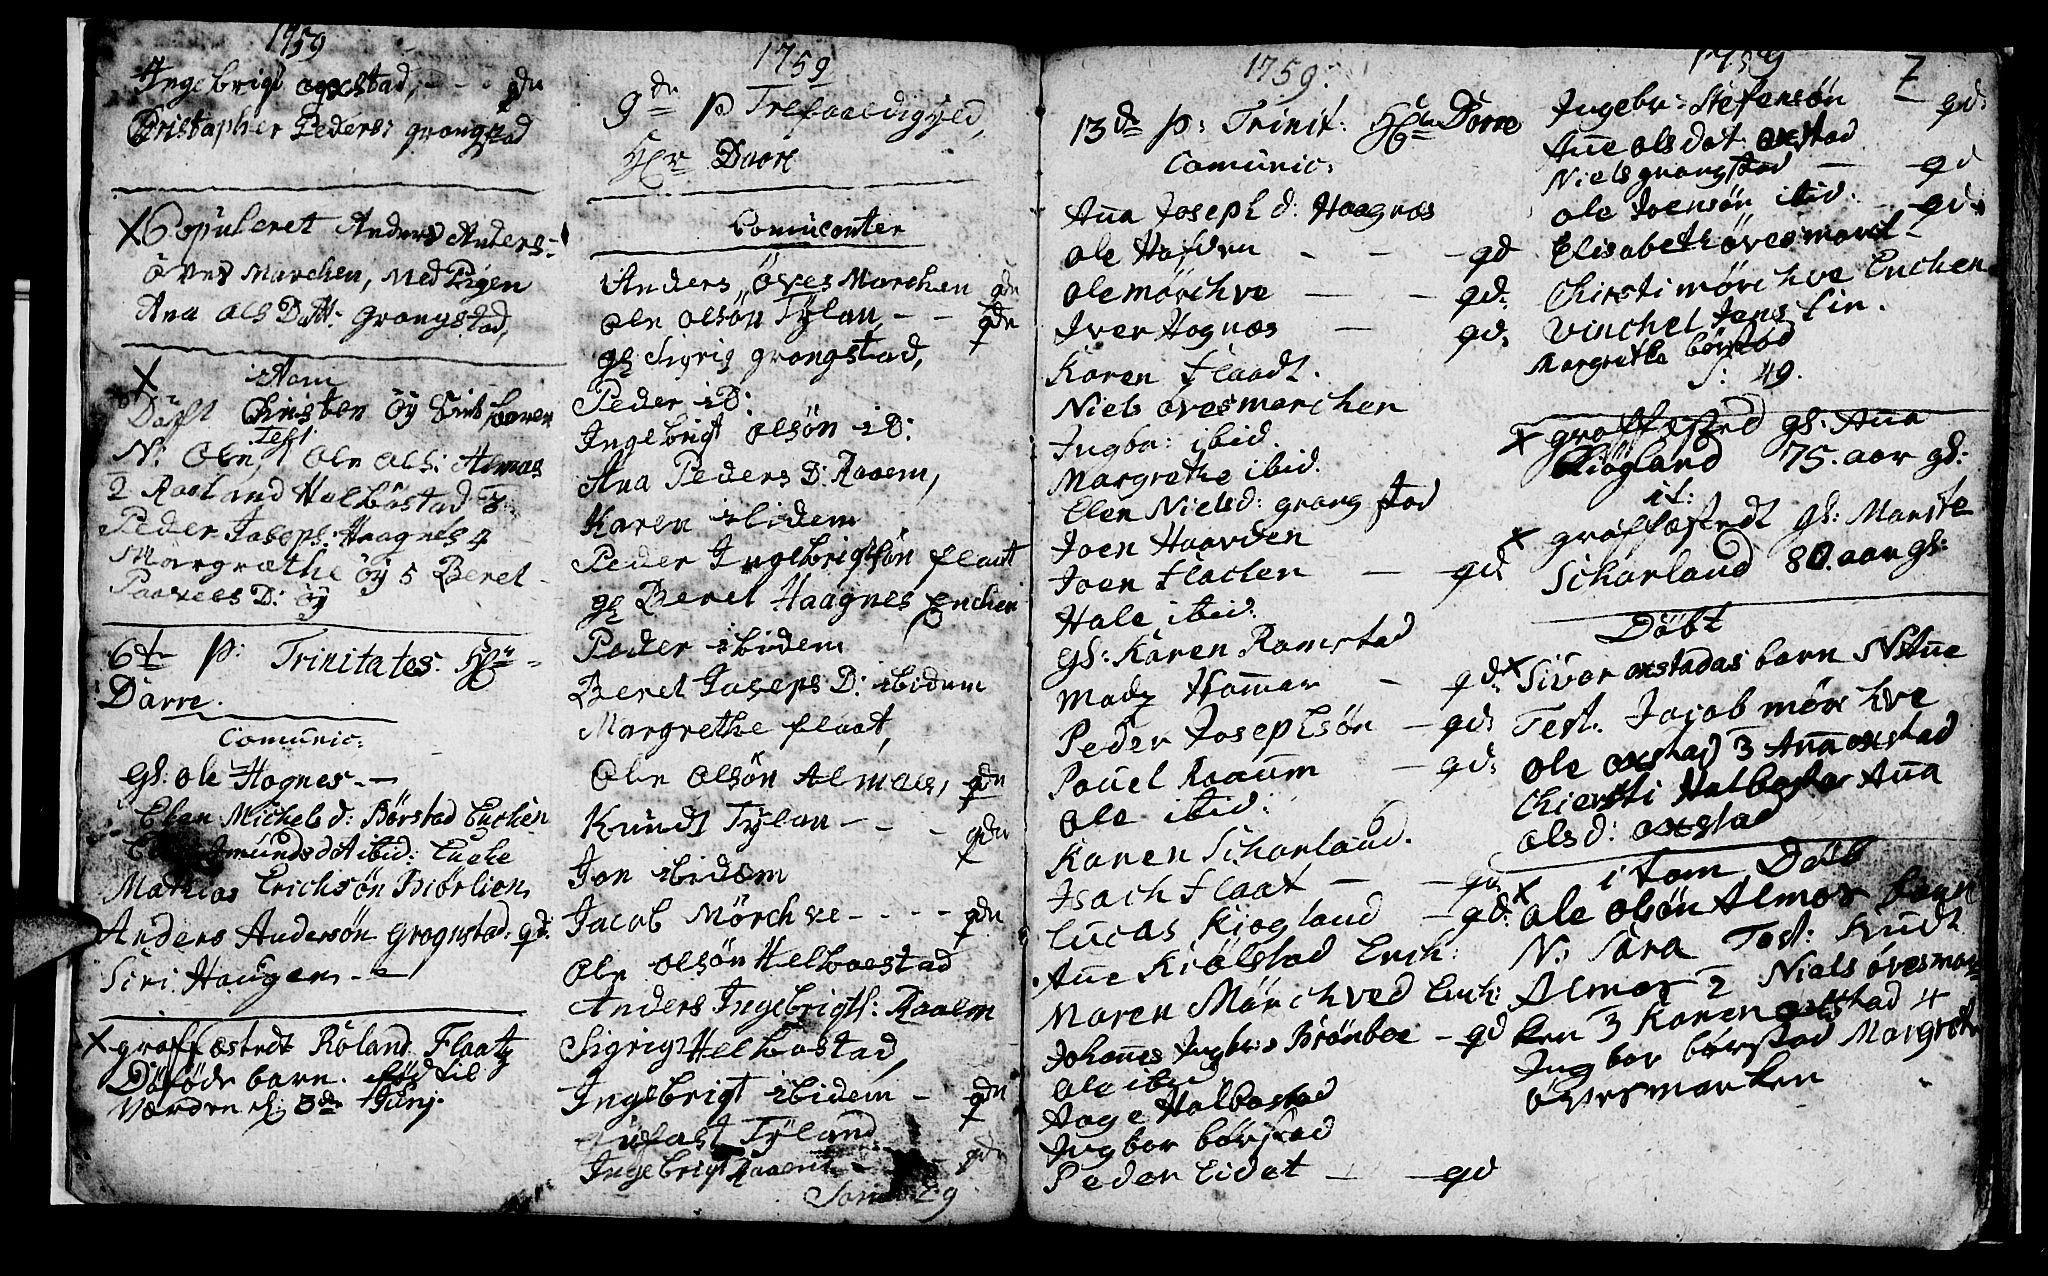 1759
Ingebrigt oxstad, - - gdr
Christopher Peders: grongstad
X Copuleret Anders Anders-
öves Marchen, Med Pigen
Ana Ols Datt: Grongstad,
X item
Döfft Christen öy barn
N: Ole Test Ole Ols: Almaas
2 Roeland Halbostad 3
Peder Joseps: Haagnes 4
Margrethe öy 5 Beret
D: öy
6te p: Trinitates: Hr
Darre.
Comunic:
gl: ole Hognes - -
Elen Michels d: Börstad Enchen
Amundsdat ibid: Enche
Mathias Erichsön Biörlien
Anders Andersön Grognstad. gd.
Siri Haugen - -
X graffæstedt Röland Flaatz
Döföde barn. föd til
Værden d: 3de Junj.
1759
9de p Trefoeldigheld,
Hr Daare
Comuicenter
Anders öves Marchen gdr
Ole olsön Tylan - - gdr
gl Sigrig grongstad,
Peder iD:
Ingebrigt olsön iD:
Ana Peders D: Raaem,
Karen ibidem
Peder Ingebrigtsön flaat
gl Beret Haagnes Enchen
Peder ibidem
Beret Joseps D: ibidem
Margrethe flaat,
Ole olsön Almaas, gdr
Knudt Tylan - - - gdr
Jon ibidem
Jacob Mörch ve - - - - gdr
Ole olsön Helboestad
Anders Ingebrigts: Raaem
Sigrig Helbostad,
Ingebrigt ibidem - gdr
Tyland
Ingebrigt Raaem - gdr
29
1759.
13de p: Trinit: Hr Dorre
Comunic:
Aña Joseph d: Haagnæs
Ole Hafden - - - gd
Ole mörchve - - gd.
Iver Hognæs - gd.
Karen flaadt.
Niels ovesmarchen
Ingbr: ibid.
Margrethe ibid.
Elen Niels d: grongstad
Joen Haarden
Joen flachen - - gd
Hale ibid:
gl: Karen Ramstad
Madz Hamar - gd
Peder Josephsön - gd:
Pouel Raaum - gd:
Ole ibid:
Karen Scharland.
Isach flaat - - gd
Lucas Kiogland - gd:
Añe Kiölstad Ench:
Maren Mörchved Ench:
Johañes Ingbr: Brönboe - gd
Ole ibid
Aage Halbostad
Ingbor börstad
Peder Eidet - - gd
1759 7
Ingebr: Stefensön gd:
Añe olsdat oxstad
Niels grongstad - gd
Ole Joensön ibid: - gd:
Elisabeth övesmarch-
Chirsti mörchve Enchen
Vinchel Jens lin.
Margrethe börstad
S: 49.
X graffæsted gl: Aña
Kiogland 75. aar gl:
it:
X graffæstedt gl: Marite
Scharland 80. aar gl:
Döbt
X Sivor oxstadas barn N Añe
Test. Jacob mörchve
Ole oxstad 3 Aña oxstad
Chiersti Halbostad Aña
olsd: oxstad
item Döbt
X Ole olsön Almos barn
N: Sara Test: Knudt
Almos 2 Niels övesmar
ken 3 Karen oxstad 4
Ingbor börstad Margrete
övesmarken